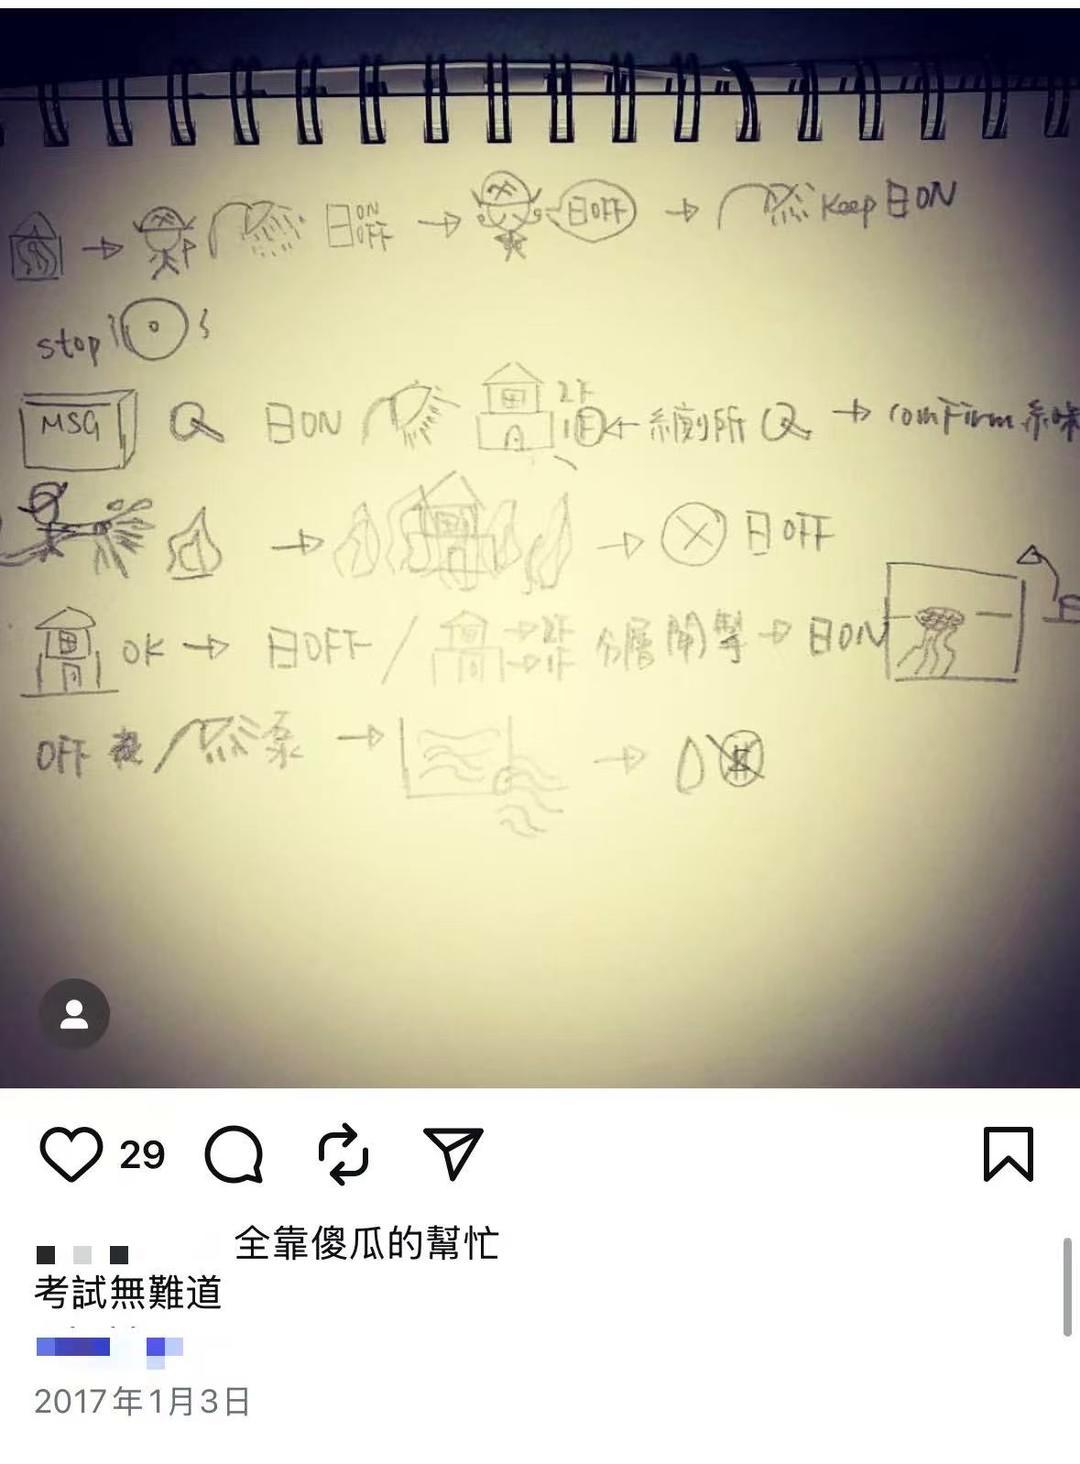 日 ON OFF 日OFF Keep 日ON
stop
MSG 日ON 2F 1F ← 係廁所 → comfirm 係咪
日OFF
OK → 日OFF / → 2F → 1F 分層開掣 → 日ON
OFF / 泵
29
全靠傻瓜的幫忙
考試無難道
2017年1月3日